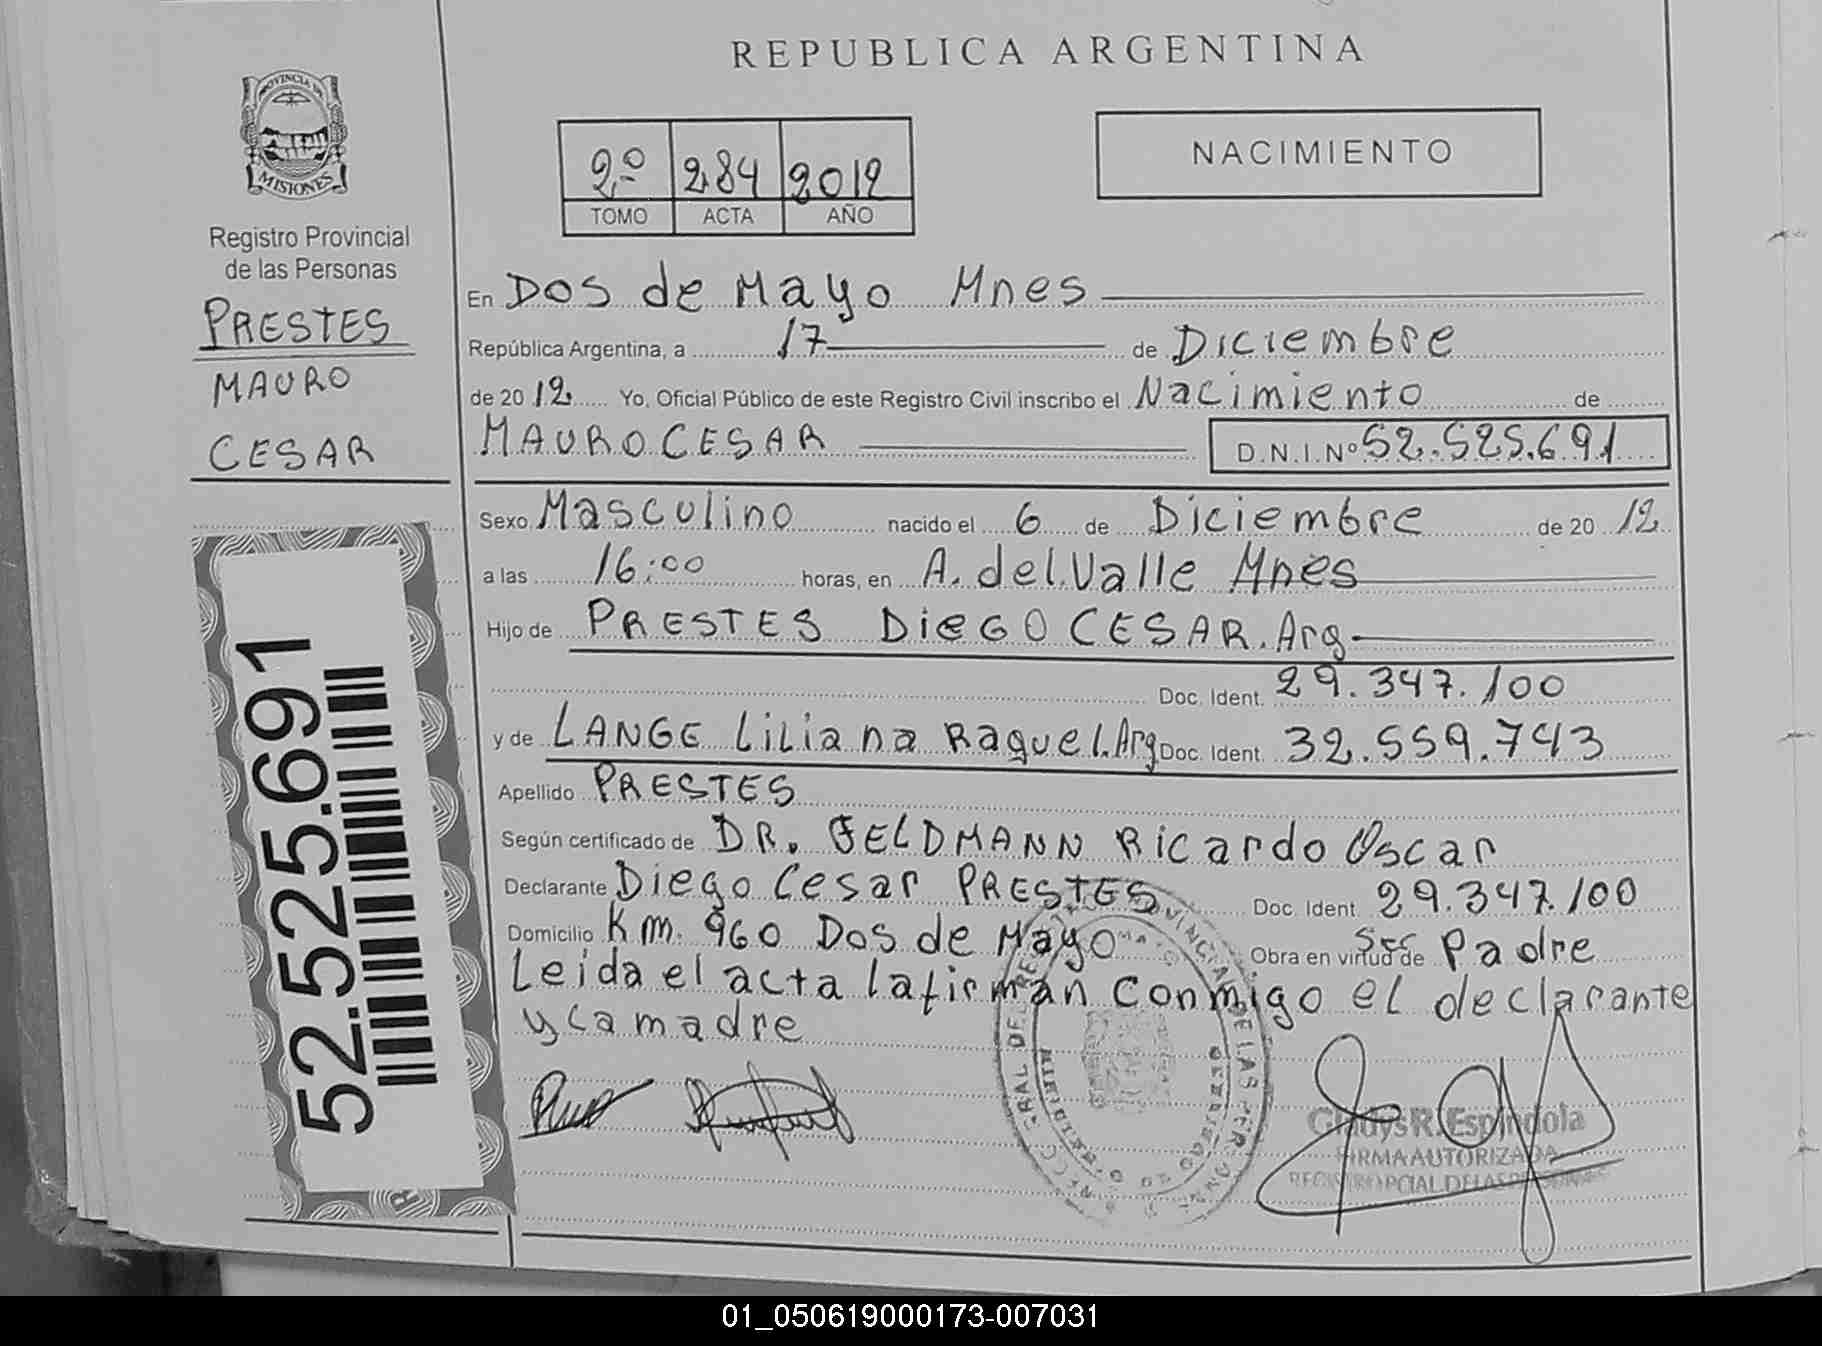 REPUBLICA ARGENTINA
PROVINCIA DE
MISIONES
Registro Provincial
de las Personas
PRESTES
MAURO
CESAR
52.525.691
2º 284 2012
TOMO ACTA AÑO
NACIMIENTO
En Dos de Mayo Mnes
República Argentina, a 17 de Diciembre
de 2012 Yo, Oficial Público de este Registro Civil inscribo el Nacimiento de
MAURO CESAR D.N.I.Nº 52.525.691
Sexo Masculino nacido el 6 de Diciembre de 20 12
a las 16:00 horas, en A. del Valle Mnes
Hijo de PRESTES DIEGO CESAR. Arg
Doc. Ident. 29.347.100
y de LANGE Liliana Raquel. Arg Doc. Ident. 32.559.743
Apellido PRESTES
Según certificado de DR. FELDMANN Ricardo Oscar
Declarante Diego Cesar PRESTES Doc. Ident. 29.347.100
Domicilio Km. 960 Dos de Mayo Obra en virtud de ser Padre
Leida el acta la firman conmigo el declarante
y la madre
Gladys R. Espindola
FIRMA AUTORIZADA
REGISTRO PCIAL DE LAS PERSONAS
01_050619000173-007031